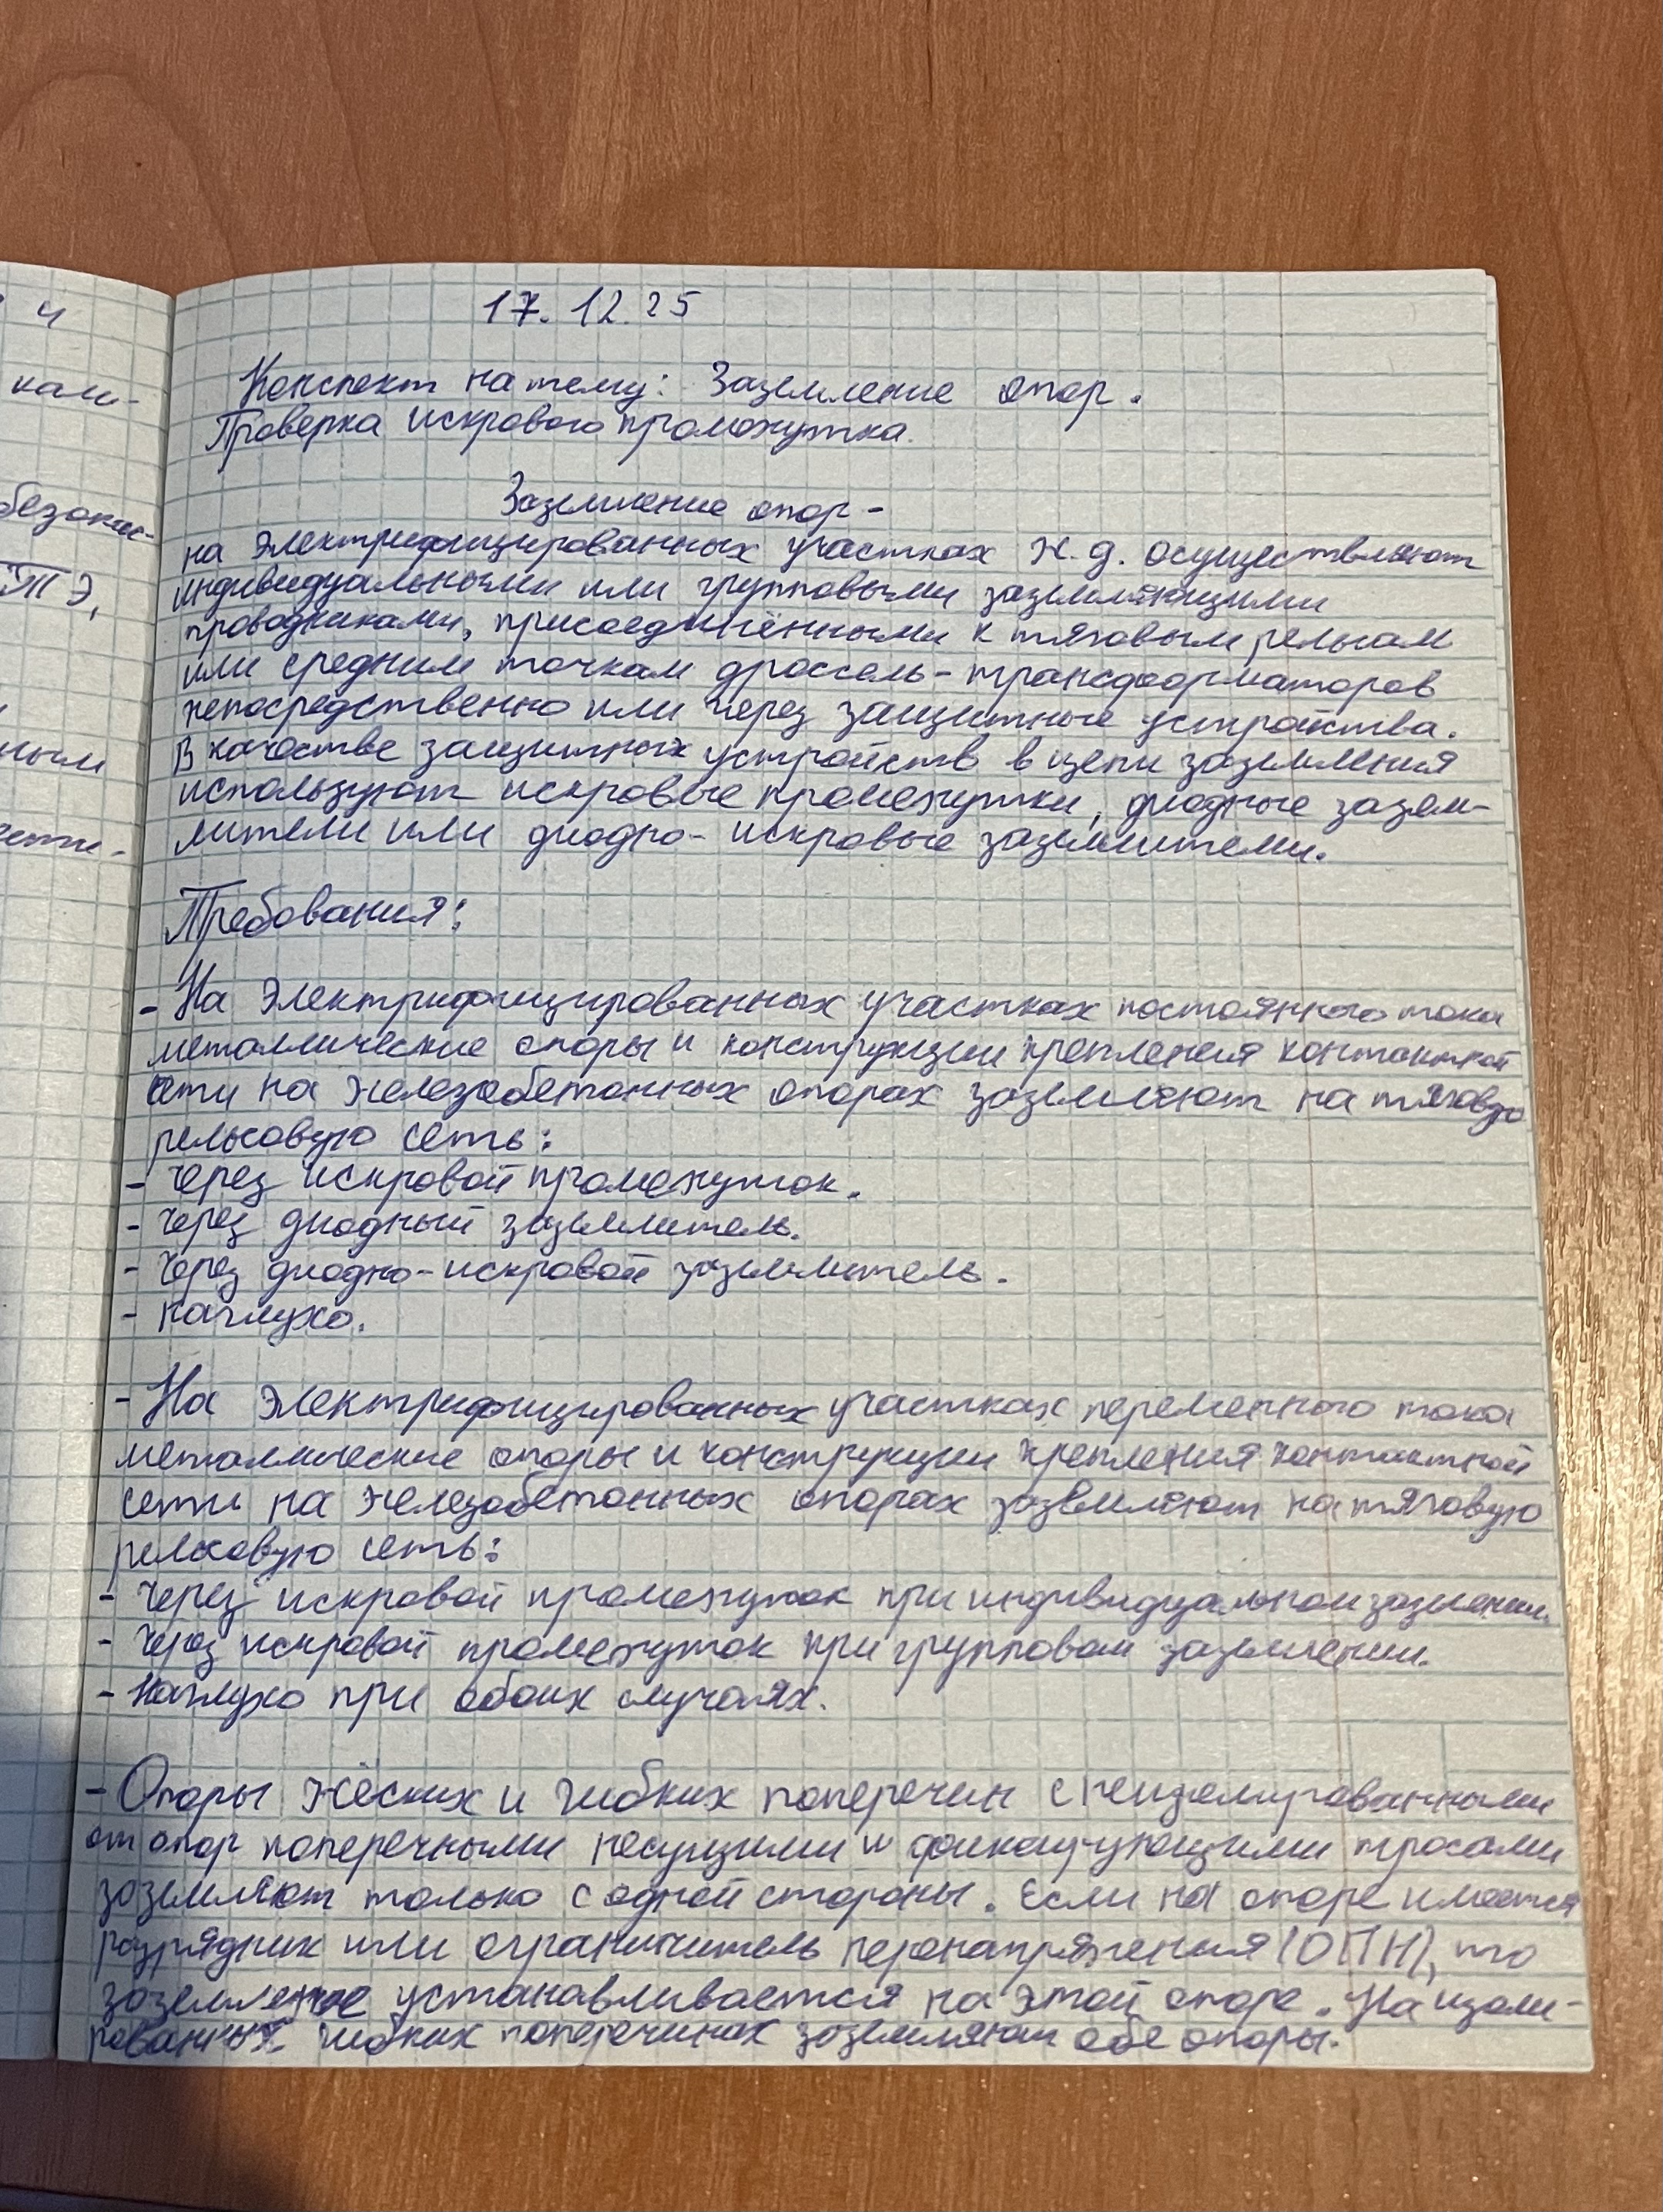 4
17.12.25
Конспект на тему: Заземление опор.
Проверка искрового промежутка.
Заземление опор -
на электрифицированных участках ж.д. осуществляют
индивидуальными или групповыми заземляющими
проводниками, присоединёнными к тяговым рельсам
или средним точкам дроссель-трансформаторов
непосредственно или через защитные устройства.
В качестве защитных устройств в цепи заземления
используют искровые промежутки, диодные зазем-
лители или диодно-искровые заземлители.
Требования:
- На электрифицированных участках постоянного тока
металлические опоры и конструкции крепления контактной
сети на железобетонных опорах заземляют на тяговую
рельсовую сеть:
- через искровой промежуток.
- через диодный заземлитель.
- через диодно-искровой заземлитель.
- наглухо.
- На электрифицированных участках переменного тока
металлические опоры и конструкции крепления контактной
сети на железобетонных опорах заземляют на тяговую
рельсовую сеть:
- через искровой промежуток при индивидуальном заземлении.
- через искровой промежуток при групповом заземлении.
- наглухо при обоих случаях.
- Опоры жёских и гибких поперечин с неизолированными
от опор поперечными несущими и фиксирующими тросами
заземляют только с одной стороны. Если на опоре имеется
разрядник или ограничитель перенапряжения (ОПН), то
заземление устанавливается на этой опоре. На изоли-
рованных гибких поперечинах заземляют обе опоры.